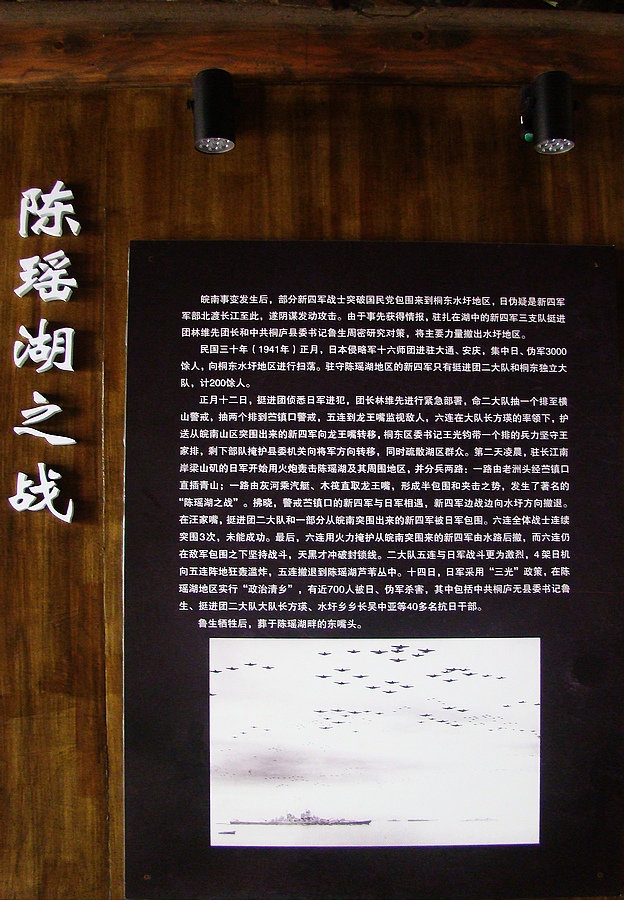 陈瑶湖之战
皖南事变发生后，部分新四军战士突破国民党包围来到桐东水圩地区，日伪疑是新四军
军部北渡长江至此，遂阴谋发动攻击。由于事先获得情报，驻扎在湖中的新四军三支队挺进
团林维先团长和中共桐庐县委书记鲁生周密研究对策，将主要力量撤出水圩地区。
民国三十年（1941年）正月，日本侵略军十六师团进驻大通、安庆，集中日、伪军3000
馀人，向桐东水圩地区进行扫荡。驻守陈瑶湖地区的新四军只有挺进团二大队和桐东独立大
队，计200馀人。
正月十二日，挺进团侦悉日军进犯，团长林维先进行紧急部署，命二大队抽一个排至横
山警戒，抽两个排到苎镇口警戒，五连到龙王嘴监视敌人，六连在大队长方瑛的率领下，护
送从皖南山区突围出来的新四军向龙王嘴转移，桐东区委书记王光钧带一个排的兵力坚守王
家排，剩下部队掩护县委机关向将军方向转移，同时疏散湖区群众。第二天凌晨，驻长江南
岸梁山矶的日军开始用火炮轰击陈瑶湖及其周围地区，并分兵两路：一路由老洲头经苎镇口
直插青山；一路由灰河乘汽艇、木筏直取龙王嘴，形成半包围和夹击之势，发生了著名的
“陈瑶湖之战”。拂晓，警戒苎镇口的新四军与日军相遇，新四军边战边向水圩方向撤退。
在汪家嘴，挺进团二大队和一部分从皖南突围出来的新四军被日军包围。六连全体战士连续
突围3次，未能成功。最后，六连用火力掩护从皖南突围来的新四军由水路后撤，而六连仍
在敌军包围之下坚持战斗，天黑才冲破封锁线。二大队五连与日军战斗更为激烈，4架日机
向五连阵地狂轰滥炸，五连撤退到陈瑶湖芦苇丛中。十四日，日军采用“三光”政策，在陈
瑶湖地区实行“政治清乡”，有近700人被日、伪军杀害，其中包括中共桐庐无县委书记鲁
生、挺进团二大队大队长方瑛、水圩乡乡长吴中亚等40多名抗日干部。
鲁生牺牲后，葬于陈瑶湖畔的东嘴头。